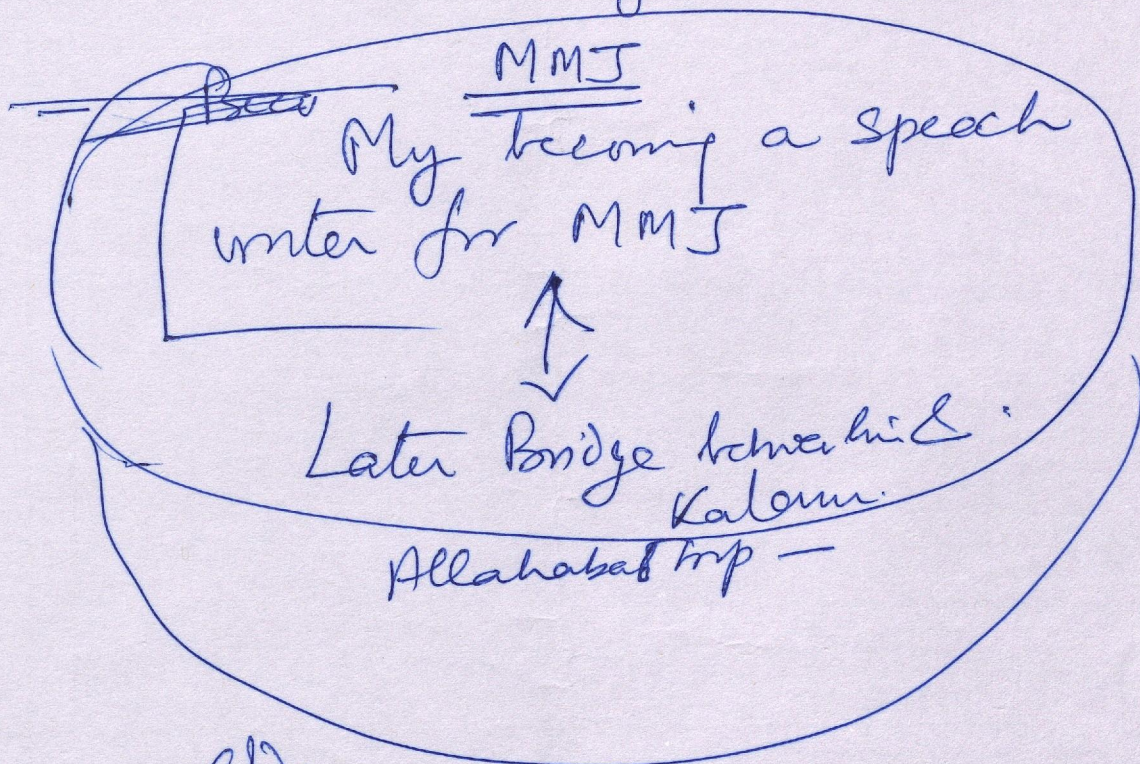 MMJ
My becoming a speech
writer for MMJ
Later Bridge between him &
Kalam.
Allahabad Trip —